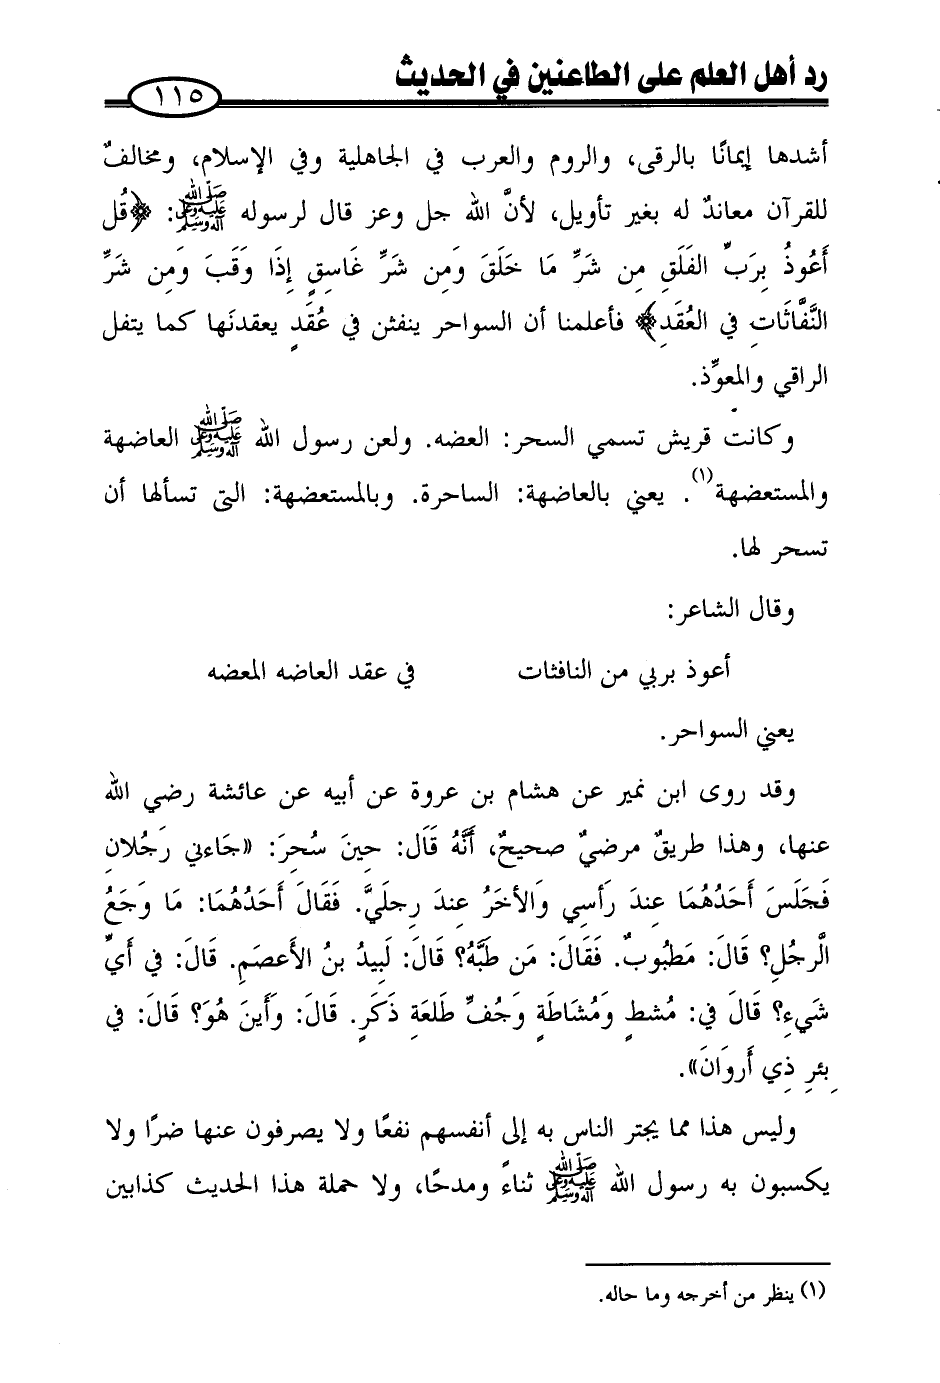 رد أهل العلم على الطاعنين في الحديث
١١٥
أشدها إيمانًا بالرقى، والروم والعرب في الجاهلية وفي الإسلام، ومخالفٌ
للقرآن معاندٌ له بغير تأويل، لأنَّ الله جل وعز قال لرسوله ﷺ: ﴿قُل
أَعُوذُ بِرَبِّ الفَلَقِ مِن شَرِّ مَا خَلَقَ وَمِن شَرِّ غَاسِقٍ إِذَا وَقَبَ وَمِن شَرِّ
النَّفَّاثَاتِ في العُقَدِ﴾ فأعلمنا أن السواحر ينفثن في عُقَدٍ يعقدنَها كما يتفل
الراقي والمعوِّذ.
وكانت قريش تسمي السحر: العضه. ولعن رسول الله ﷺ العاضهة
والمستعضهة(١). يعني بالعاضهة: الساحرة. وبالمستعضهة: التى تسألها أن
تسحر لها.
وقال الشاعر:
أعوذ بربي من النافثات في عقد العاضه المعضه
يعني السواحر.
وقد روى ابن نمير عن هشام بن عروة عن أبيه عن عائشة رضي الله
عنها، وهذا طريقٌ مرضيٌ صحيحٌ، أَنَّهُ قَال: حِينَ سُحرَ: «جَاءني رَجُلانِ
فَجَلَسَ أَحَدُهُمَا عِندَ رَأسِي وَالأخَرُ عِندَ رِجلَيَّ. فَقَالَ أَحَدُهُمَا: مَا وَجَعُ
الَّرجُلِ؟ قَالَ: مَطبُوبٌ. فَقَالَ: مَن طَبَّهُ؟ قَالَ: لَبِيدُ بنُ الأَعصَمِ. قَالَ: في أَيِّ
شَيءٍ؟ قَالَ في: مُشطٍ وَمُشَاطَةٍ وَجُفِّ طَلعَةِ ذَكَرٍ. قَالَ: وَأَينَ هُوَ؟ قَالَ: في
بِئرِ ذِي أَروَانَ».
وليس هذا مما يجتر الناس به إلى أنفسهم نفعًا ولا يصرفون عنها ضرًا ولا
يكسبون به رسول الله ﷺ ثناءً ومدحًا، ولا حملة هذا الحديث كذابين
(١) ينظر من أخرجه وما حاله.